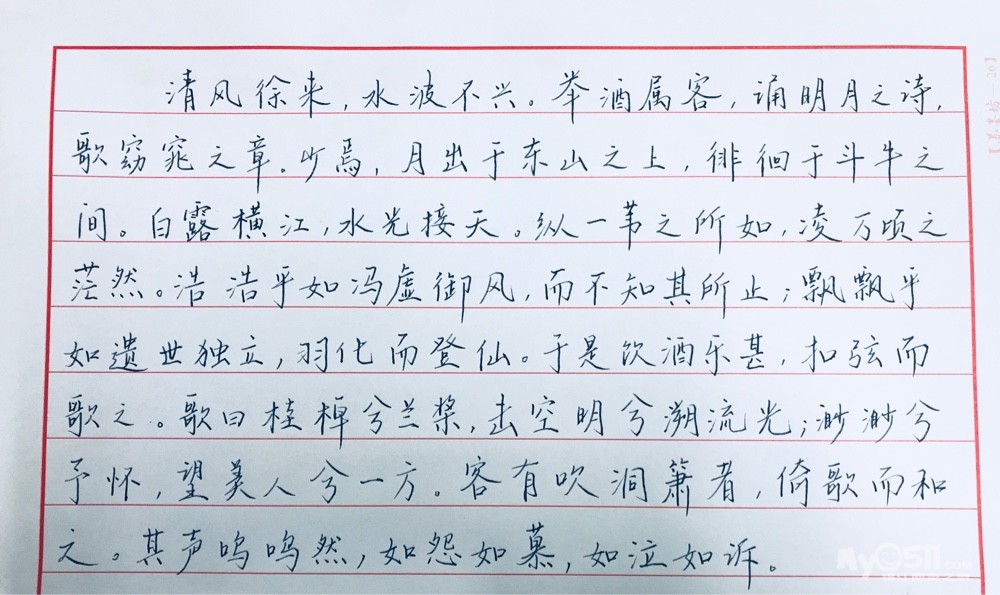 清风徐来,水波不兴。举酒属客,诵明月之诗,
歌窈窕之章。少焉,月出于东山之上,徘徊于斗牛之
间。白露横江,水光接天。纵一苇之所如,凌万顷之
茫然。浩浩乎如冯虚御风,而不知其所止;飘飘乎
如遗世独立,羽化而登仙。于是饮酒乐甚,扣弦而
歌之。歌曰桂棹兮兰桨,击空明兮溯流光;渺渺兮
予怀,望美人兮一方。客有吹洞箫者,倚歌而和
之。其声呜呜然,如怨如慕,如泣如诉。
MyOSll.com